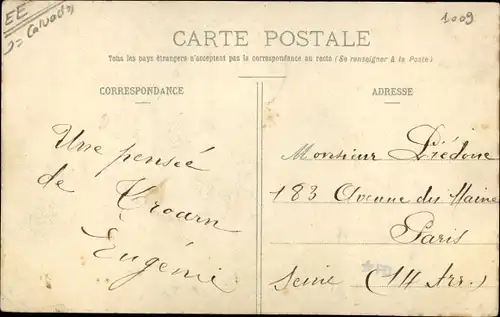 EE
Calvados
1009
CARTE POSTALE
Tous les pays étrangers n'acceptent pas la correspondance au recto (Se renseigner à la Poste)
CORRESPONDANCE
ADRESSE
Une pensée
de Troarn
Eugénie
Monsieur Diédone
183 Avenue du Maine
Paris
Seine (14 Arr.)